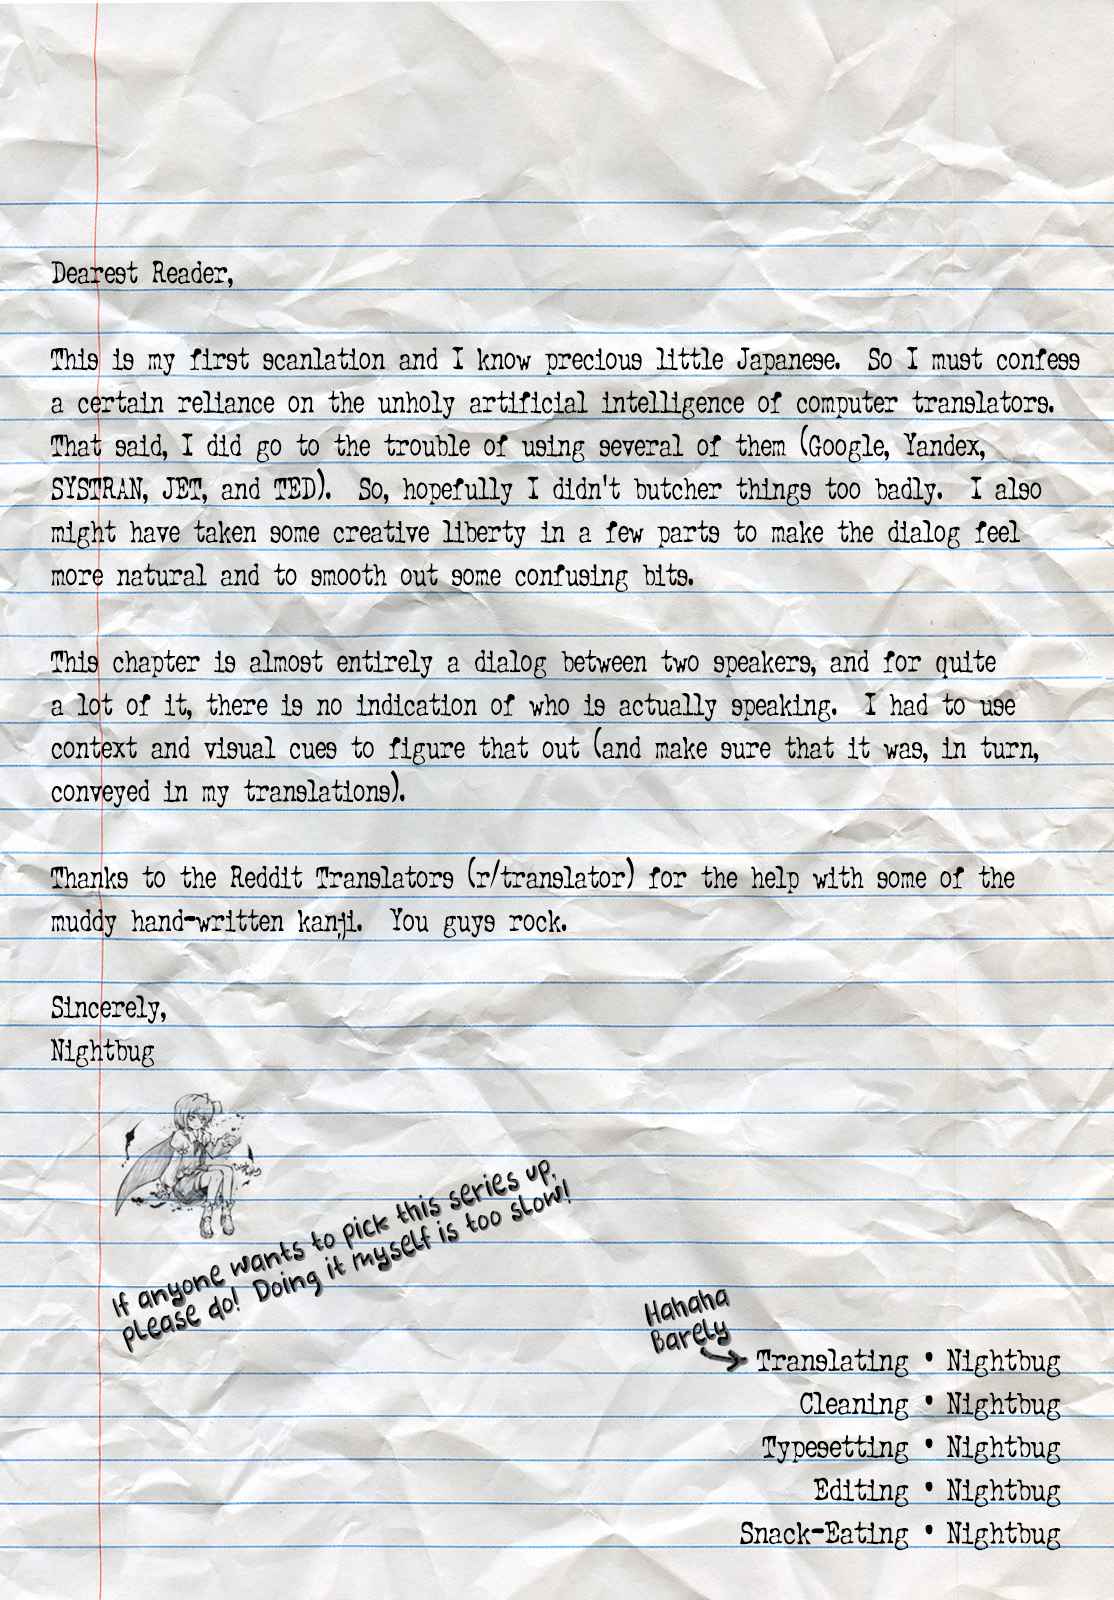 Dearest Reader,
This is my first scanlation and I know precious little Japanese.  So I must confess
a certain reliance on the unholy artificial intelligence of computer translators.
That said, I did go to the trouble of using several of them (Google, Yandex,
SYSTRAN, JET, and TED).  So, hopefully I didn't butcher things too badly.  I also
might have taken some creative liberty in a few parts to make the dialog feel
more natural and to smooth out some confusing bits.
This chapter is almost entirely a dialog between two speakers, and for quite
a lot of it, there is no indication of who is actually speaking.  I had to use
context and visual cues to figure that out (and make sure that it was, in turn,
conveyed in my translations).
Thanks to the Reddit Translators (r/translator) for the help with some of the
muddy hand-written kanji.  You guys rock.
Sincerely,
Nightbug
If anyone wants to pick this series up,
please do!  Doing it myself is too slow!
Hahaha
Barely
Translating • Nightbug
Cleaning • Nightbug
Typesetting • Nightbug
Editing • Nightbug
Snack-Eating • Nightbug